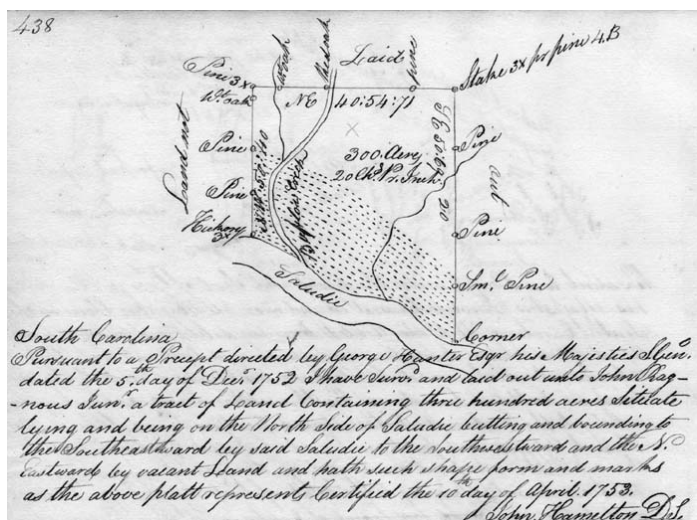 438
Laid
Pine 3x
Wt oak
Wt oak
Red oak
pine
Stake 3x pr pine 4.B
NE 40:54:71
Land not
out
Pine
Pine
Hickory
3x
300: Acres
20 Chs Pr. Inch
Creek
SE 50:62 20
Pine
Pine
Sm.l Pine
Corner
Saludie
South Carolina
Pursuant to a Precept directed by George Hunter Esqr his Majesties S Gen.
dated the 5.th day of Decr 1752 I have Survd and laid out unto John
-nous Junr a tract of Land Containing three hundred acres Setelate
lying and being on the North Side of Saludie butting and bounding to
the Southeastward by said Saludie to the Southwestward and the N.
Eastwards by vacant Land and hath such shape form and marks
as the above platt represents Certified the 10th day of April. 1753.
John Hamelton D.S.